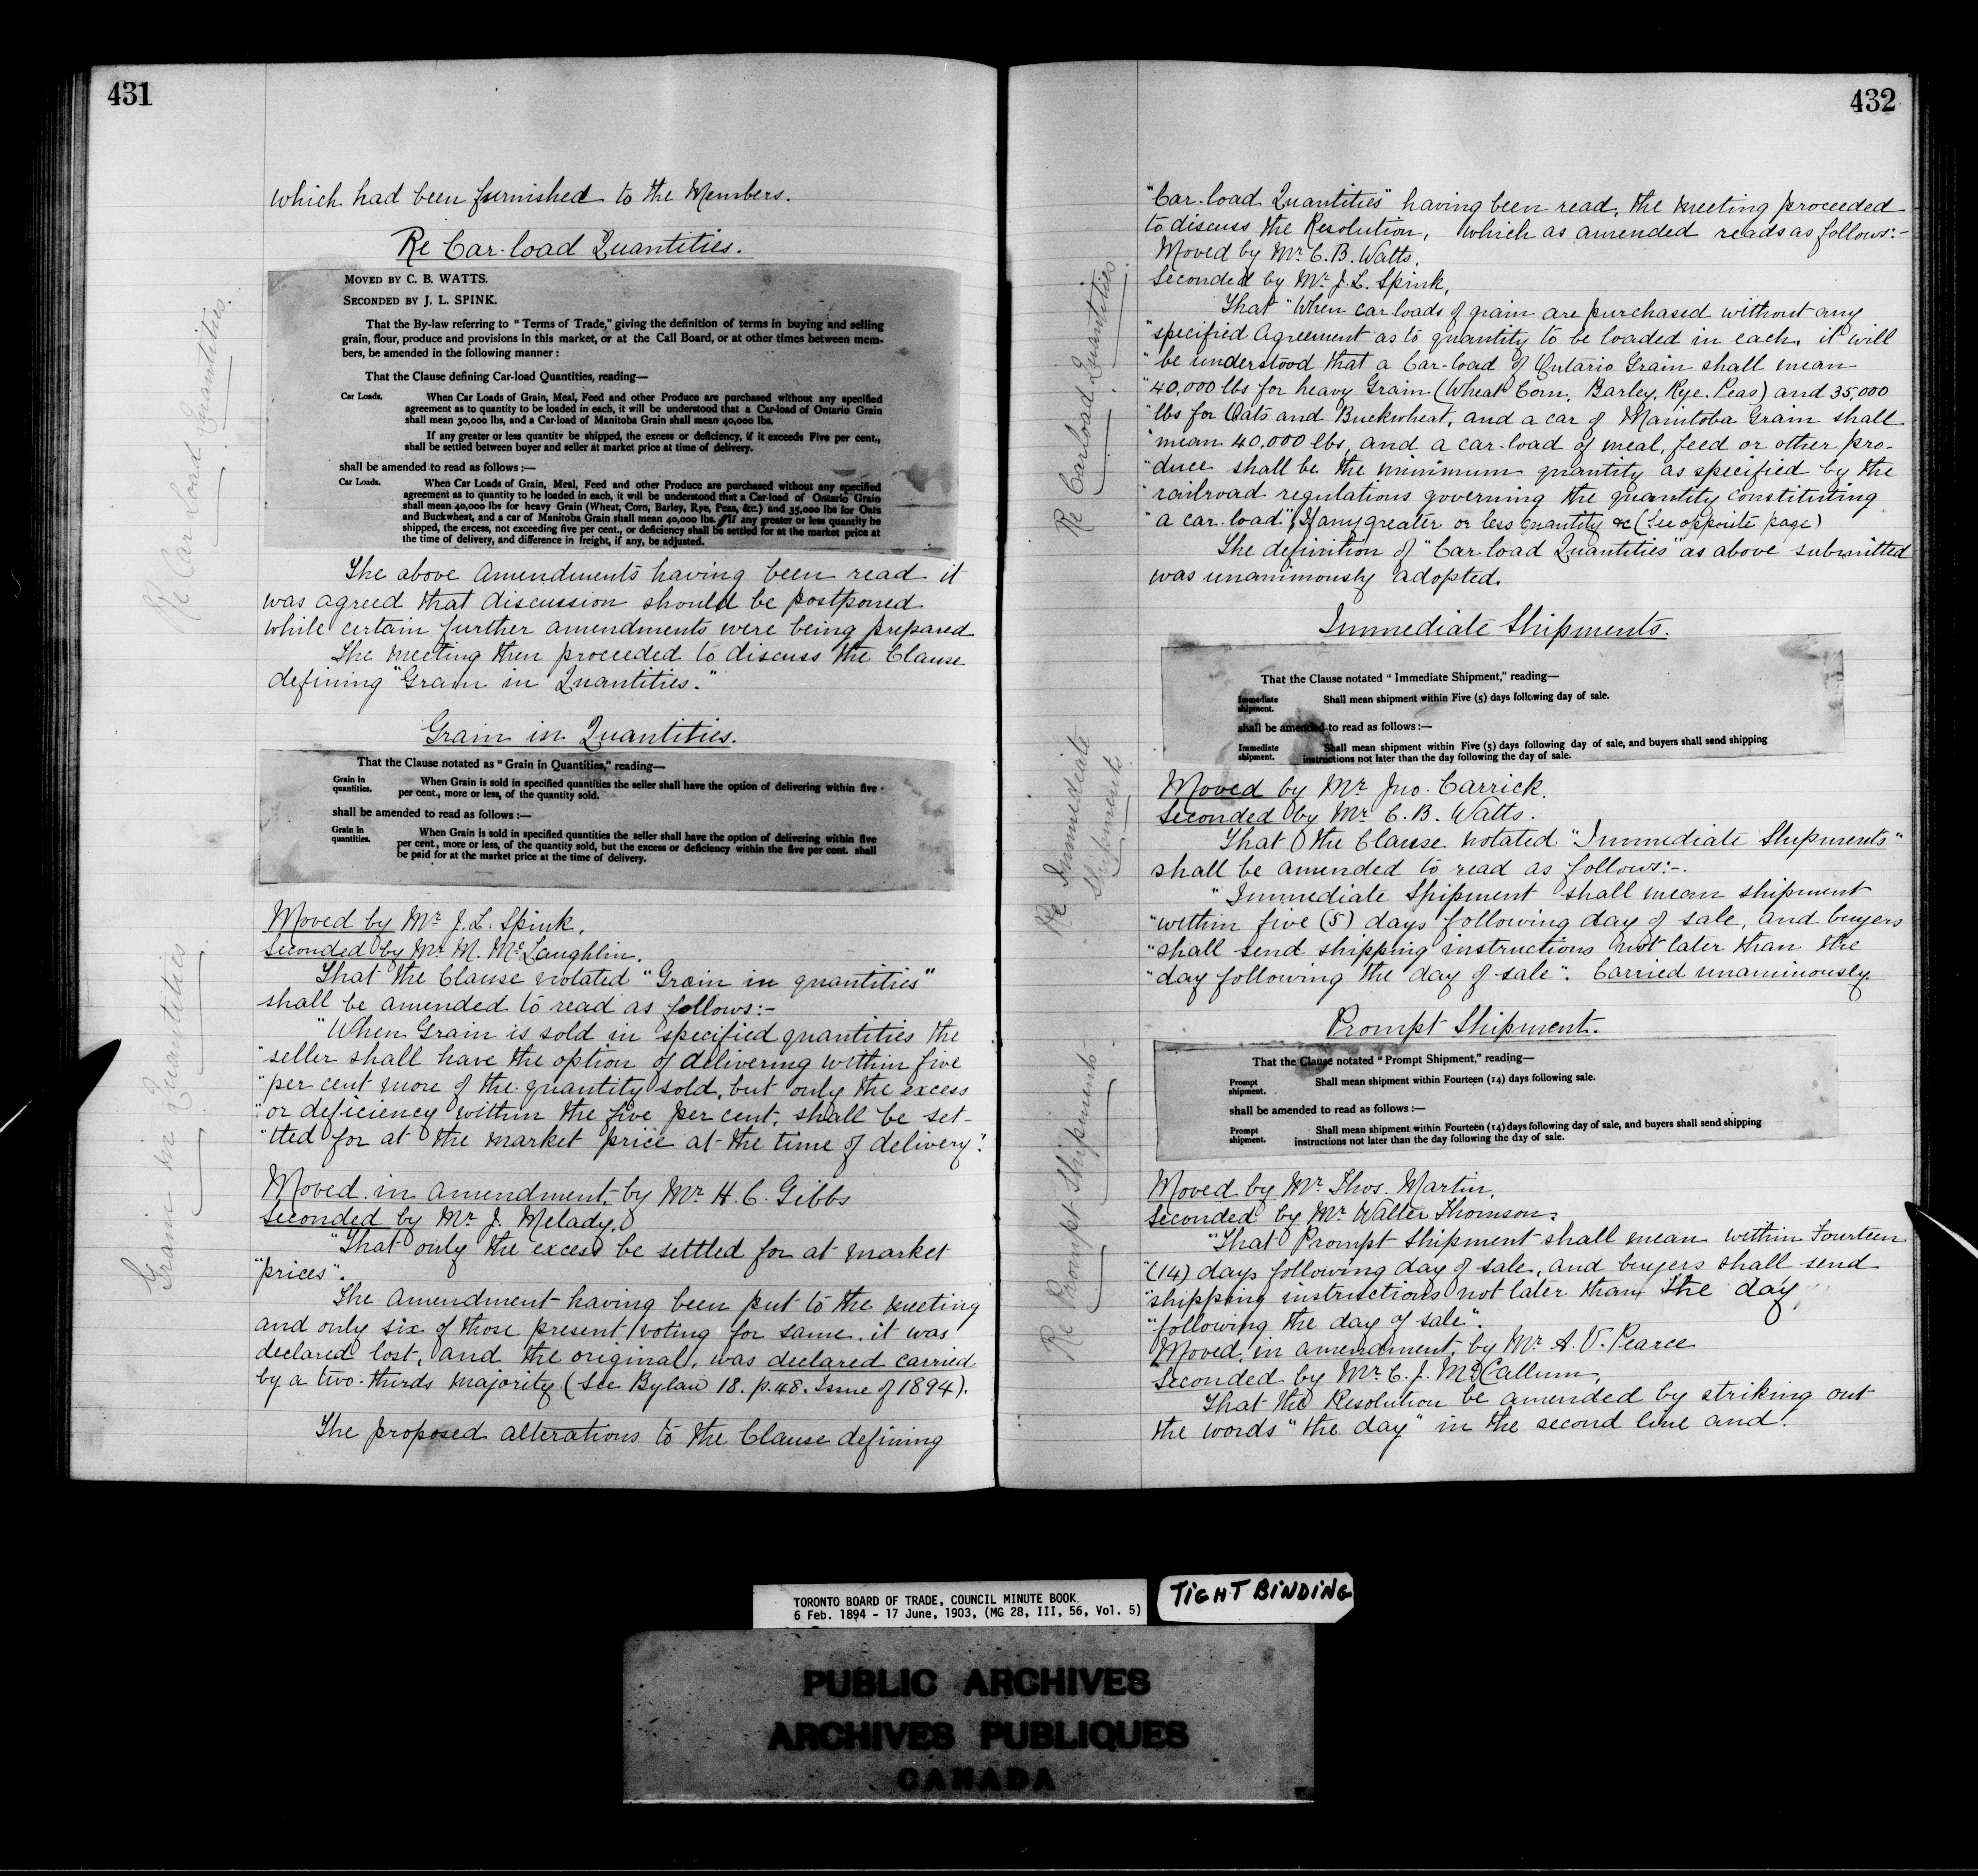 431
which had been furnished to the Members.
Re Car-load Quantities.
Re Car Load Quantities.
MOVED BY C. B. WATTS.
SECONDED BY J. L. SPINK.
That the By-law referring to "Terms of Trade," giving the definition of terms in buying and selling
grain, flour, produce and provisions in this market, or at the Call Board, or at other times between mem-
bers, be amended in the following manner :
That the Clause defining Car-load Quantities, reading—
Car Loads. When Car Loads of Grain, Meal, Feed and other Produce are purchased without any specified
agreement as to quantity to be loaded in each, it will be understood that a Car-load of Ontario Grain
shall mean 30,000 lbs, and a Car-load of Manitoba Grain shall mean 40,000 lbs.
If any greater or less quantity be shipped, the excess or deficiency, if it exceeds Five per cent.,
shall be settled between buyer and seller at market price at time of delivery.
shall be amended to read as follows :—
Car Loads. When Car Loads of Grain, Meal, Feed and other Produce are purchased without any specified
agreement as to quantity to be loaded in each, it will be understood that a Car-load of Ontario Grain
shall mean 40,000 lbs for heavy Grain (Wheat, Corn, Barley, Rye, Peas, &c.) and 35,000 lbs for Oats
and Buckwheat, and a car of Manitoba Grain shall mean 40,000 lbs. If any greater or less quantity be
shipped, the excess, not exceeding five per cent., or deficiency shall be settled for at the market price at
the time of delivery, and difference in freight, if any, be adjusted.
The above Amendments having been read it
was agreed that discussion should be postponed
while certain further amendments were being prepared
The Meeting then proceeded to discuss the Clause
defining "Grain in Quantities."
Grain in Quantities.
That the Clause notated as "Grain in Quantities," reading—
Grain in quantities. When Grain is sold in specified quantities the seller shall have the option of delivering within five
per cent., more or less, of the quantity sold.
shall be amended to read as follows :—
Grain in quantities. When Grain is sold in specified quantities the seller shall have the option of delivering within five
per cent., more or less, of the quantity sold, but the excess or deficiency within the five per cent. shall
be paid for at the market price at the time of delivery.
Grain in Quantities
Moved by Mr J.L. Spink,
Seconded by Mr M. McLaughlin.
That the Clause notated "Grain in quantities"
shall be amended to read as follows:-
"When Grain is sold in specified quantities the
"seller shall have the option of delivering within five
"per cent more of the quantity sold, but only the excess
"or deficiency within the five per cent, shall be set-
"tled for at the market price at the time of delivery".
Moved in amendment, by Mr H. C. Gibbs
Seconded by Mr J. Melady,
"That only the excess be settled for at market
"prices".
The Amendment having been put to the meeting
and only six of those present voting for same, it was
declared lost, and the original, was declared carried
by a two-thirds majority (See Bylaw 18. p.48. Issue of 1894).
The proposed alterations to the Clause defining
432
"Car-load Quantities" having been read, the meeting proceeded
to discuss the Resolution, which as amended reads as follows:-
Re Carload Quantities
Moved by Mr C. B. Watts,
Seconded by Mr J. L. Spink,
That "When car loads of grain are purchased without any
"specified Agreement as to quantity to be loaded in each, it will
"be understood that a Car-load of Ontario Grain shall mean
"40,000 lbs for heavy Grain (Wheat Corn, Barley, Rye, Peas) and 35,000
"lbs for Oats and Buckwheat, and a car of Manitoba Grain shall
"mean 40,000 lbs, and a car-load of meal, feed or other pro-
"duce shall be the minimum quantity as specified by the
"railroad regulations governing the quantity constituting
"a car-load". If any greater or less quantity &c (See opposite page)
The definition of "Car load Quantities" as above submitted
was unanimously adopted.
Immediate Shipments.
That the Clause notated "Immediate Shipment," reading—
Immediate shipment. Shall mean shipment within Five (5) days following day of sale.
shall be amended to read as follows :—
Immediate shipment. Shall mean shipment within Five (5) days following day of sale, and buyers shall send shipping
instructions not later than the day following the day of sale.
Re Immediate
Shipments
Moved by Mr Jno. Carrick.
Seconded by Mr C. B. Watts.
That the Clause notated "Immediate Shipments"
shall be amended to read as follows:-
"Immediate Shipment shall mean shipment
"within five (5) days following day of sale, and buyers
"shall send shipping instructions not later than the
"day following the day of sale". Carried unanimously.
Prompt Shipment.
That the Clause notated "Prompt Shipment," reading—
Prompt shipment. Shall mean shipment within Fourteen (14) days following sale.
shall be amended to read as follows :—
Prompt shipment. Shall mean shipment within Fourteen (14) days following day of sale, and buyers shall send shipping
instructions not later than the day following the day of sale.
Re Prompt Shipments
Moved by Mr Thos. Martin,
Seconded by Mr Walter Thomson:
"That Prompt Shipment shall mean within Fourteen
"(14) days following day of sale, and buyers shall send
"shipping instructions not later than the day
"following the day of sale".
Moved, in amendment, by Mr A. V. Pearce
Seconded by Mr C. J. McCallum,
That the Resolution be amended by striking out
the words "the day" in the second line and
TORONTO BOARD OF TRADE, COUNCIL MINUTE BOOK
6 Feb. 1894 - 17 June, 1903, (MG 28, III, 56, Vol. 5)
TIGHT BINDING
PUBLIC ARCHIVES
ARCHIVES PUBLIQUES
CANADA